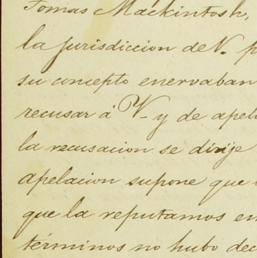 Tomas Mackintosh,
la jurisdiccion de V. p
su concepto enervaban
recusar á V. y de apel
la recusacion se dirige
apelacion supone que
que la reputamos en
términos no hubo dec